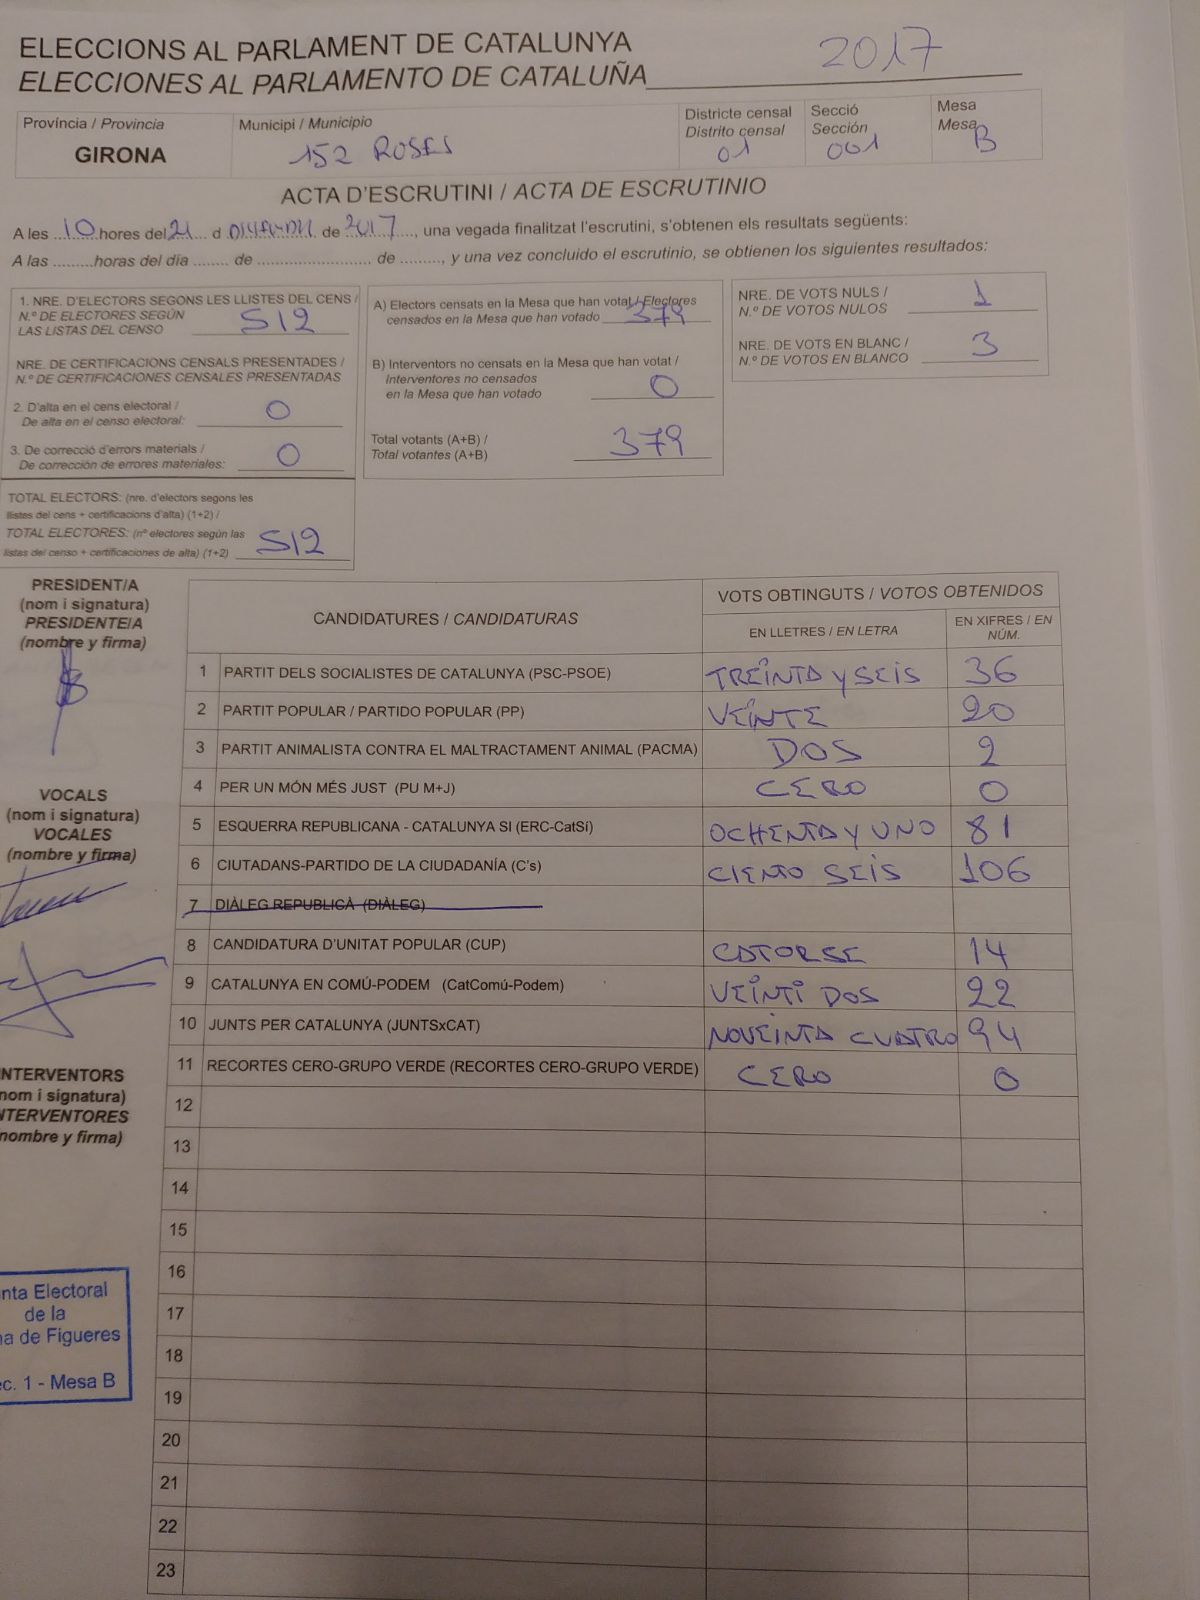 ELECCIONS AL PARLAMENT DE CATALUNYA
ELECCIONES AL PARLAMENTO DE CATALUÑA 2017
Província / Provincia
GIRONA
Municipi / Municipio
152 ROSES
Districte censal
Distrito censal
01
Secció
Sección
001
Mesa
Mesa
B
ACTA D'ESCRUTINI / ACTA DE ESCRUTINIO
A les 10 hores del 21 d de 2017, una vegada finalitzat l'escrutini, s'obtenen els resultats següents:
A las .........horas del día ........ de ........................ de ........., y una vez concluido el escrutinio, se obtienen los siguientes resultados:
1. NRE. D'ELECTORS SEGONS LES LLISTES DEL CENS /
N.º DE ELECTORES SEGÚN
LAS LISTAS DEL CENSO 512
NRE. DE CERTIFICACIONS CENSALS PRESENTADES /
N.º DE CERTIFICACIONES CENSALES PRESENTADAS
2. D'alta en el cens electoral /
De alta en el censo electoral: 0
3. De correcció d'errors materials /
De corrección de errores materiales: 0
TOTAL ELECTORS: (nre. d'electors segons les
llistes del cens + certificacions d'alta) (1+2) /
TOTAL ELECTORES: (nº electores según las
listas del censo + certificaciones de alta) (1+2) 512
A) Electors censats en la Mesa que han votat / Electores
censados en la Mesa que han votado 379
B) Interventors no censats en la Mesa que han votat /
Interventores no censados
en la Mesa que han votado 0
Total votants (A+B) /
Total votantes (A+B) 379
NRE. DE VOTS NULS /
N.º DE VOTOS NULOS 1
NRE. DE VOTS EN BLANC /
N.º DE VOTOS EN BLANCO 3
PRESIDENT/A
(nom i signatura)
PRESIDENTE/A
(nombre y firma)
VOCALS
(nom i signatura)
VOCALES
(nombre y firma)
INTERVENTORS
(nom i signatura)
INTERVENTORES
(nombre y firma)
CANDIDATURES / CANDIDATURAS
VOTS OBTINGUTS / VOTOS OBTENIDOS
EN LLETRES / EN LETRA
EN XIFRES / EN
NÚM.
1 PARTIT DELS SOCIALISTES DE CATALUNYA (PSC-PSOE) TREINTA y SEIS 36
2 PARTIT POPULAR / PARTIDO POPULAR (PP) VEINTE 20
3 PARTIT ANIMALISTA CONTRA EL MALTRACTAMENT ANIMAL (PACMA) DOS 2
4 PER UN MÓN MÉS JUST (PU M+J) CERO 0
5 ESQUERRA REPUBLICANA - CATALUNYA SI (ERC-CatSí) OCHENTA y UNO 81
6 CIUTADANS-PARTIDO DE LA CIUDADANÍA (C's) CIENTO SEIS 106
7 DIÀLEG REPUBLICÀ (DIÀLEG)
8 CANDIDATURA D'UNITAT POPULAR (CUP) CATORSE 14
9 CATALUNYA EN COMÚ-PODEM (CatComú-Podem) VEINTI DOS 22
10 JUNTS PER CATALUNYA (JUNTSxCAT) NOVEINTA CUATRO 94
11 RECORTES CERO-GRUPO VERDE (RECORTES CERO-GRUPO VERDE) CERO 0
12
13
14
15
16
17
18
19
20
21
22
23
nta Electoral
de la
na de Figueres
ec. 1 - Mesa B